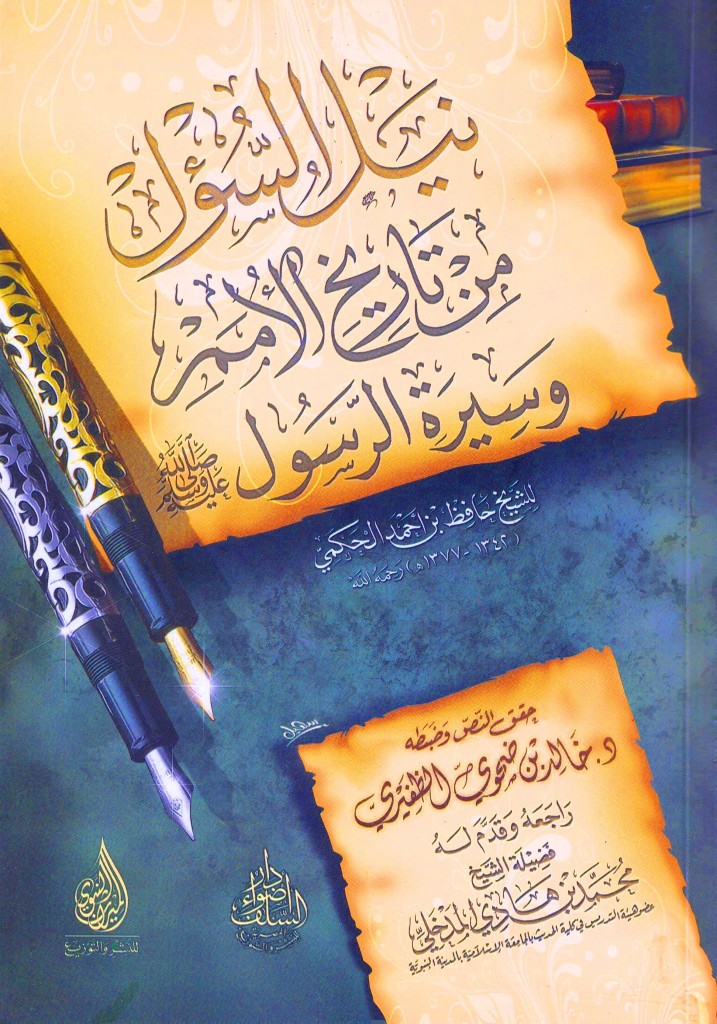 نَيْلُ السُّؤْلِ
مِنْ تَارِيخِ الأُمَمِ
وَسِيرَةِ الرَّسُولِ صَلَّى اللَّهُ عَلَيْهِ وَسَلَّمَ
لِلشَّيْخِ حَافِظِ بْنِ أَحْمَدَ الْحَكَمِيِّ
(١٣٤٢ - ١٣٧٧هـ) رَحِمَهُ اللَّهُ
حقق النص وضبطه
د. خالد بن ضحوي الظفيري
راجعه وقدم له
فضيلة الشيخ
محمد بن هادي المدخلي
عضو هيئة التدريس في كلية الحديث بالجامعة الإسلامية بالمدينة النبوية
دار أضواء السلف
الميراث النبوي
للنشر والتوزيع